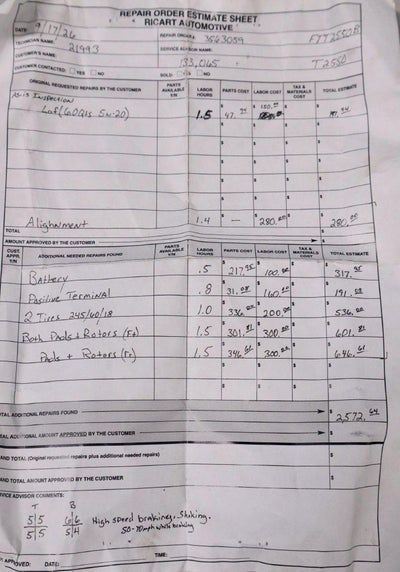 REPAIR ORDER ESTIMATE SHEET
RICART AUTOMOTIVE
DATE: 9/17/26
REPAIR ORDER #: 3563059
TECHNICIAN NAME: 21993
SERVICE ADVISOR NAME:
CUSTOMER'S NAME: 133,065
CUSTOMER CONTACTED: YES NO
SOLD: YES NO
ORIGINAL REQUESTED REPAIRS BY THE CUSTOMER PARTS AVAILABLE Y/N LABOR HOURS PARTS COST LABOR COST TAX & MATERIALS COST TOTAL ESTIMATE
As-is Inspection
1.5 $ 47. $ 150.00
Alighnment 1.4 $ — $ 280.00 $ $ 280.00
TOTAL
AMOUNT APPROVED BY THE CUSTOMER $
CUST. APPR. Y/N ADDITIONAL NEEDED REPAIRS FOUND PARTS AVAILABLE Y/N LABOR HOURS PARTS COST LABOR COST TAX & MATERIALS COST TOTAL ESTIMATE
Battery .5 $ 217.95 $ 100.00 $ $ 317.95
Positive Terminal .8 $ 31. $ 160.00 $ $ 191.
2 Tires 245/60/18 1.0 $ 336.00 $ 200.00 $ $ 536.00
Both Pads + Rotors (Ft) 1.5 $ 301.81 $ 300.00 $ $ 601.81
Pads + Rotors 1.5 $ 346.61 $ 300.00 $ $ 646.61
TOTAL ADDITIONAL REPAIRS FOUND $ 2,572.64
TOTAL ADDITIONAL AMOUNT APPROVED BY THE CUSTOMER $
GRAND TOTAL (Original requested repairs plus additional needed repairs) $
GRAND TOTAL AMOUNT APPROVED BY THE CUSTOMER $
SERVICE ADVISOR COMMENTS:
T B
5 5 6 6 High speed braking, Shaking.
5 5 5 4 50-70mph while braking
TIME:
APPROVED: DATE: